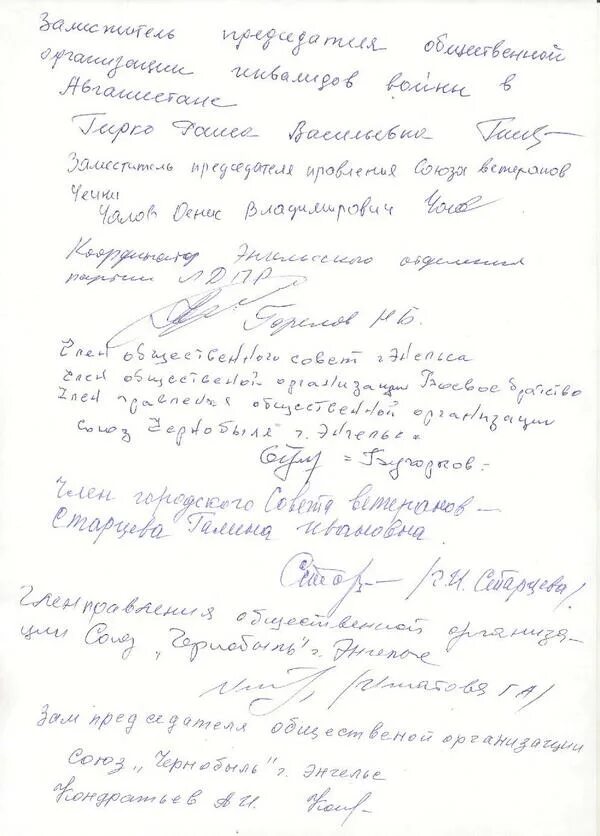 Заместитель председателя общественной
организации инвалидов войны в
Афганистане
Гирко Раиса Васильевна
Заместитель председателя правления Союза ветеранов
Чечни
Чалов Денис Владимирович
Координатор Энгельсского отделения
партии ЛДПР
Горелов Н Б.
Член общественного совет г Энгельса
Член общественной организации Боевое братство
Член правления общественной организации
союз Чернобыля г. Энгельс
= Бугорков =
Член городского Совета ветеранов —
Старцева Галина Ивановна.
/Г.И. Старцева/
Член правления общественной организа-
ции Союз „Чернобыль" г. Энгельс
/Игнатова ГА/
Зам председателя общественой организации
союз „Чернобыль" г. Энгельс
Кондратьев А И.